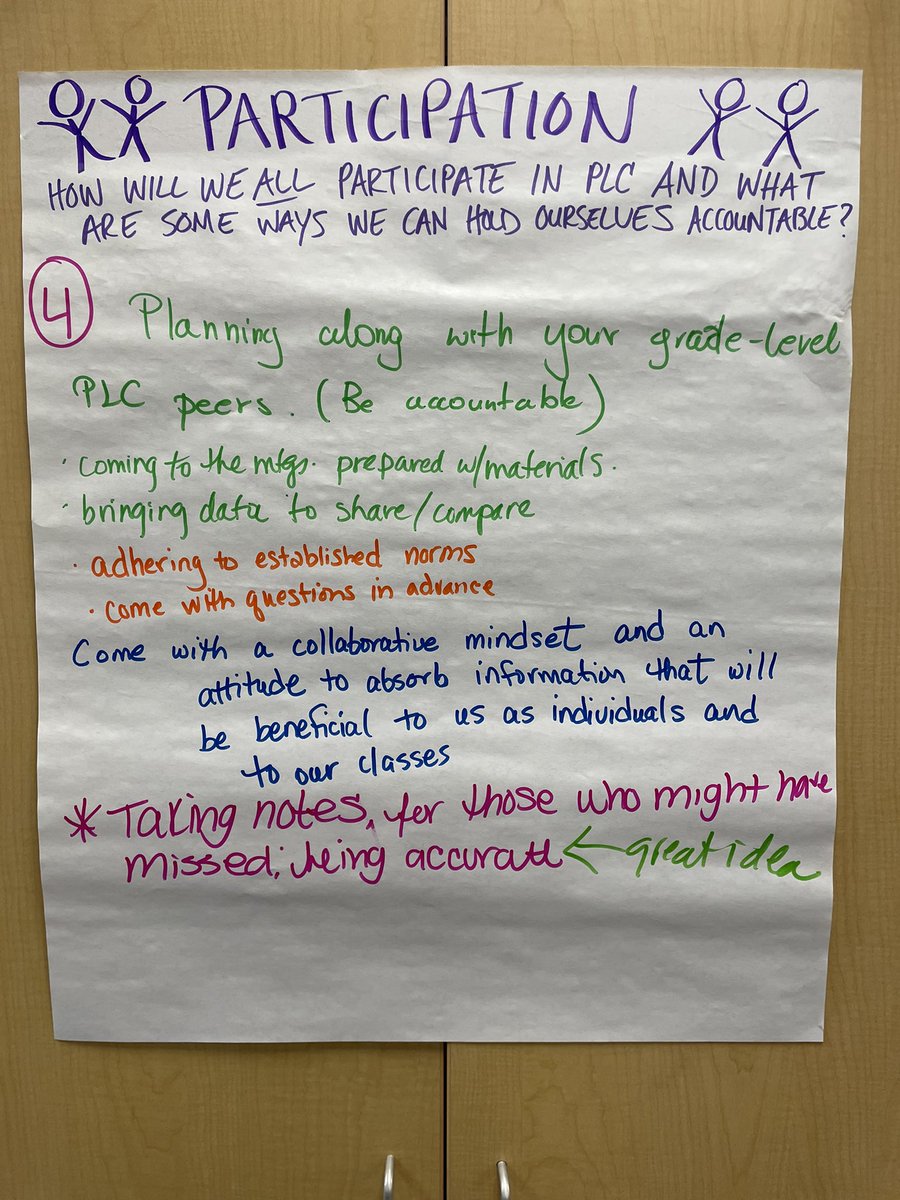 PARTICIPATION
HOW WILL WE ALL PARTICIPATE IN PLC AND WHAT
ARE SOME WAYS WE CAN HOLD OURSELVES ACCOUNTABLE?
4
Planning along with your grade-level
PLC peers. (Be accountable)
· coming to the mtgs. prepared w/materials.
· bringing data to share/compare
· adhering to established norms
· come with questions in advance
Come with a collaborative mindset and an
attitude to absorb information that will
be beneficial to us as individuals and
to our classes
* Taking notes, for those who might have
missed; being accurate ← great idea